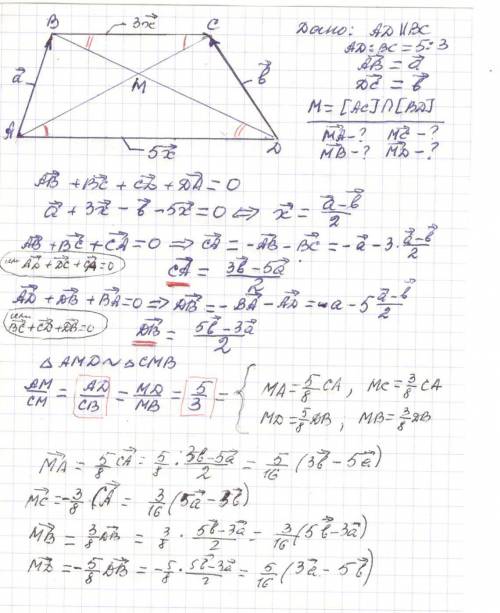 B 3x⃗ C
a⃗ M b⃗
A 5x⃗ D
Дано: AD ∥ BC
AD : BC = 5 : 3
AB⃗ = a⃗
DC⃗ = b⃗
M = [AC] ∩ [BD]
MA⃗ - ? MC⃗ - ?
MB⃗ - ? MD⃗ - ?
AB⃗ + BC⃗ + CD⃗ + DA⃗ = 0
a⃗ + 3x⃗ - b⃗ - 5x⃗ = 0 ⇔ x⃗ = (a⃗ - b⃗)/2
AB⃗ + BC⃗ + CA⃗ = 0 ⇒ CA⃗ = -AB⃗ - BC⃗ = -a⃗ - 3·(a⃗ - b⃗)/2
или AD⃗ + DC⃗ + CA⃗ = 0
CA⃗ = (3b⃗ - 5a⃗)/2
AD⃗ + DB⃗ + BA⃗ = 0 ⇒ DB⃗ = -BA⃗ - AD⃗ = a - 5 (a⃗ - b⃗)/2
или BC⃗ + CD⃗ + DB⃗ = 0
DB⃗ = (5b⃗ - 3a⃗)/2
△ AMD ~ △ CMB
AM/CM = AD/CB = MD/MB = 5/3 = {
MA = 5/8 CA, MC = 3/8 CA
MD = 5/8 DB, MB = 3/8 DB
MA⃗ = 5/8 CA⃗ = 5/8 · (3b⃗ - 5a⃗)/2 = 5/16 (3b⃗ - 5a⃗)
MC⃗ = -3/8 CA⃗ = 3/16 (5a⃗ - 3b⃗)
MB⃗ = 3/8 DB⃗ = 3/8 · (5b⃗ - 3a⃗)/2 = 3/16 (5b⃗ - 3a⃗)
MD⃗ = -5/8 DB⃗ = -5/8 · (5b⃗ - 3a⃗)/2 = 5/16 (3a⃗ - 5b⃗)